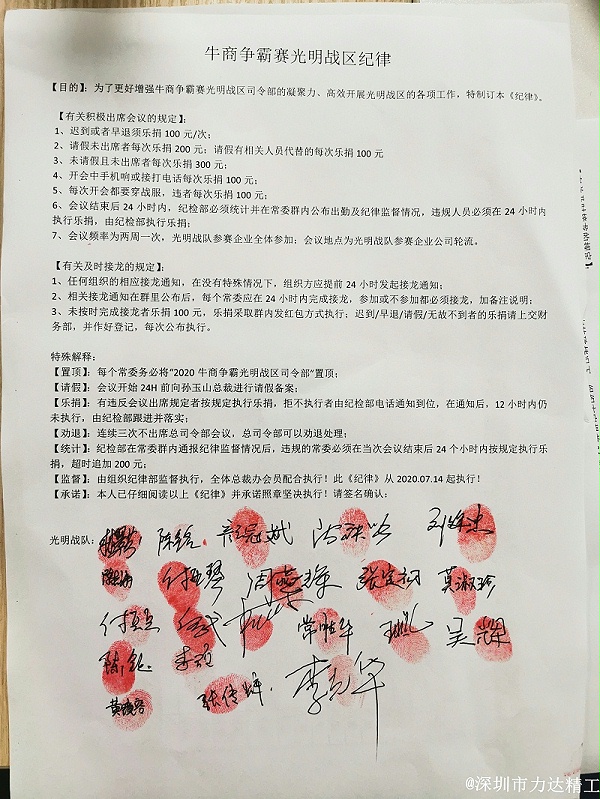 牛商争霸赛光明战区纪律
【目的】：为了更好增强牛商争霸赛光明战区司令部的凝聚力、高效开展光明战区的各项工作，特制订本《纪律》。
【有关积极出席会议的规定】：
1、迟到或者早退须乐捐 100 元/次；
2、请假未出席者每次乐捐 200 元；请假有相关人员代替的每次乐捐 100 元
3、未请假且未出席者每次乐捐 300 元；
4、开会中手机响或接打电话每次乐捐 100 元；
5、每次开会都要穿战服，违者每次乐捐 100 元；
6、会议结束后 24 小时内，纪检部必须统计并在常委群内公布出勤及纪律监督情况，违规人员必须在 24 小时内
执行乐捐，由纪检部执行乐捐；
7、会议频率为两周一次，光明战队参赛企业全体参加；会议地点为光明战队参赛企业公司轮流。
【有关及时接龙的规定】：
1、任何组织的相应接龙通知，在没有特殊情况下，组织方应提前 24 小时发起接龙通知；
2、相关接龙通知在群里公布后，每个常委应在 24 小时内完成接龙，参加或不参加都必须接龙，加备注说明；
3、未按时完成接龙者乐捐 100 元，乐捐采取群内发红包方式执行；迟到/早退/请假/无故不到者的乐捐请上交财
务部，并作好登记，每次公布执行。
特殊解释：
【置顶】：每个常委务必将“2020 牛商争霸光明战区司令部”置顶；
【请假】：会议开始 24H 前向孙玉山总裁进行请假备案；
【乐捐】：有违反会议出席规定者按规定执行乐捐，拒不执行者由纪检部电话通知到位，在通知后，12 小时内仍
未执行，由纪检部跟进并落实；
【劝退】：连续三次不出席总司令部会议，总司令部可以劝退处理；
【统计】：纪检部在常委群内通报纪律监督情况后，违规的常委必须在当次会议结束后 24 个小时内按规定执行乐
捐，超时追加 200 元；
【监督】：由组织纪律部监督执行，全体总裁办会员配合执行！此《纪律》从 2020.07.14 起执行！
【承诺】：本人已仔细阅读以上《纪律》并承诺照章坚决执行！请签名确认：
光明战队：
莫淑珍
吴辉
@深圳市力达精工